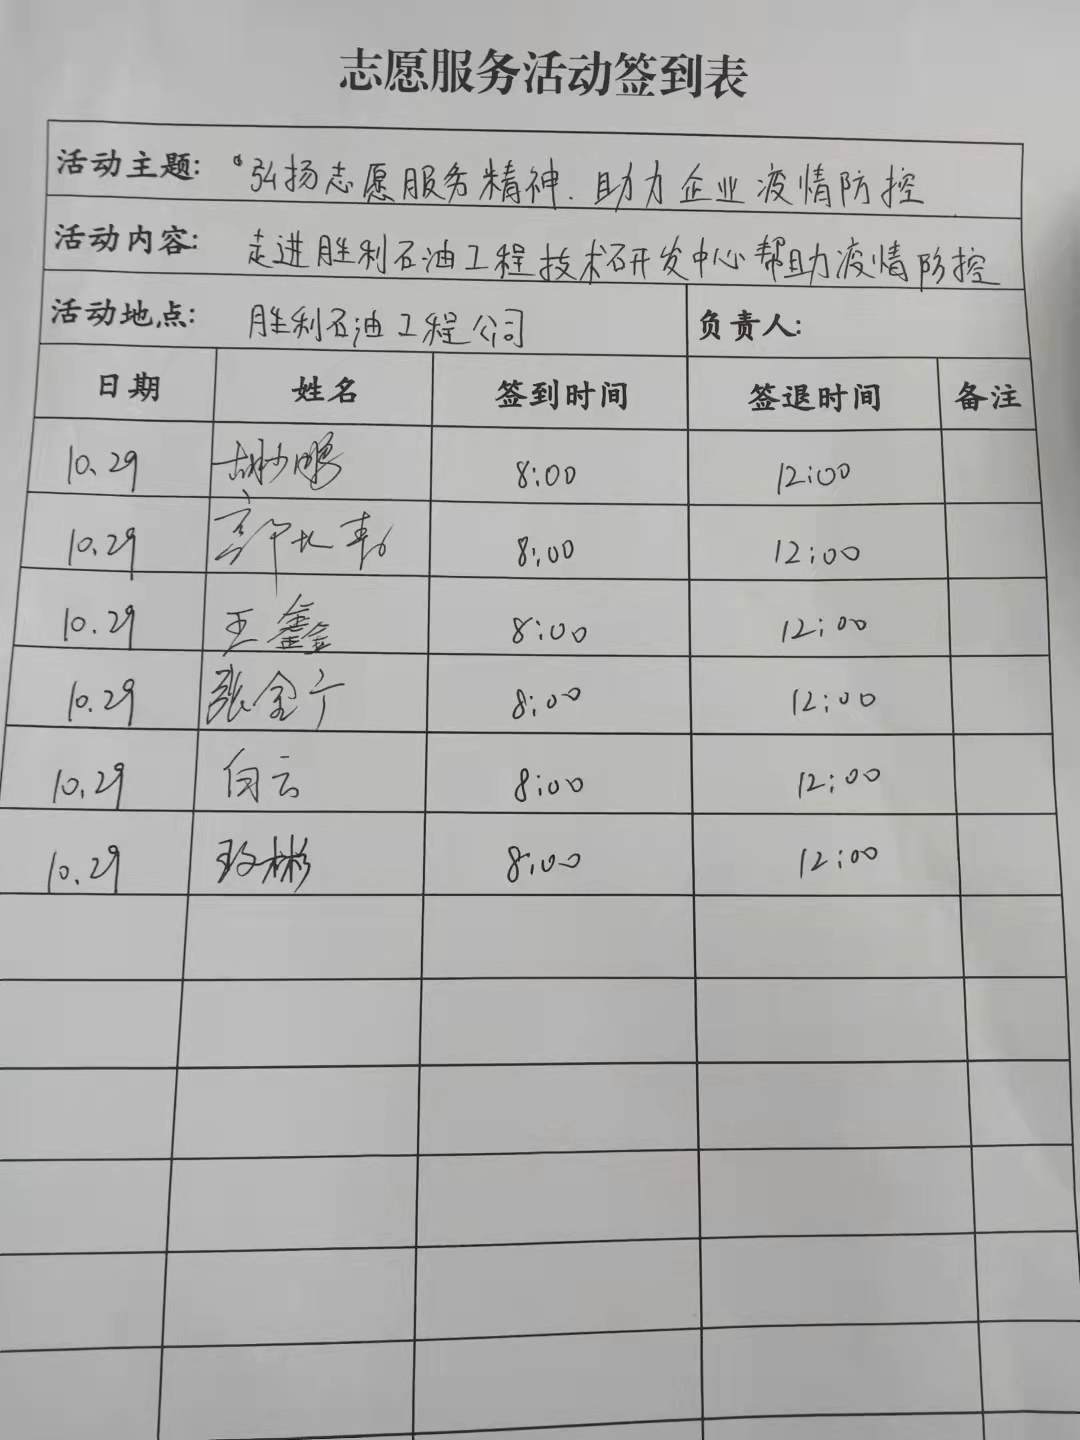 志愿服务活动签到表
活动主题: “弘扬志愿服务精神.助力企业疫情防控
活动内容: 走进胜利石油工程技术研发中心帮助疫情防控
活动地点: 胜利石油工程公司 负责人:
日期 姓名 签到时间 签退时间 备注
10.29 胡少鹏 8:00 12:00
10.29 8:00 12:00
10.29 王鑫 8:00 12:00
10.29 张金宁 8:00 12:00
10.29 白云 8:00 12:00
10.29 8:00 12:00